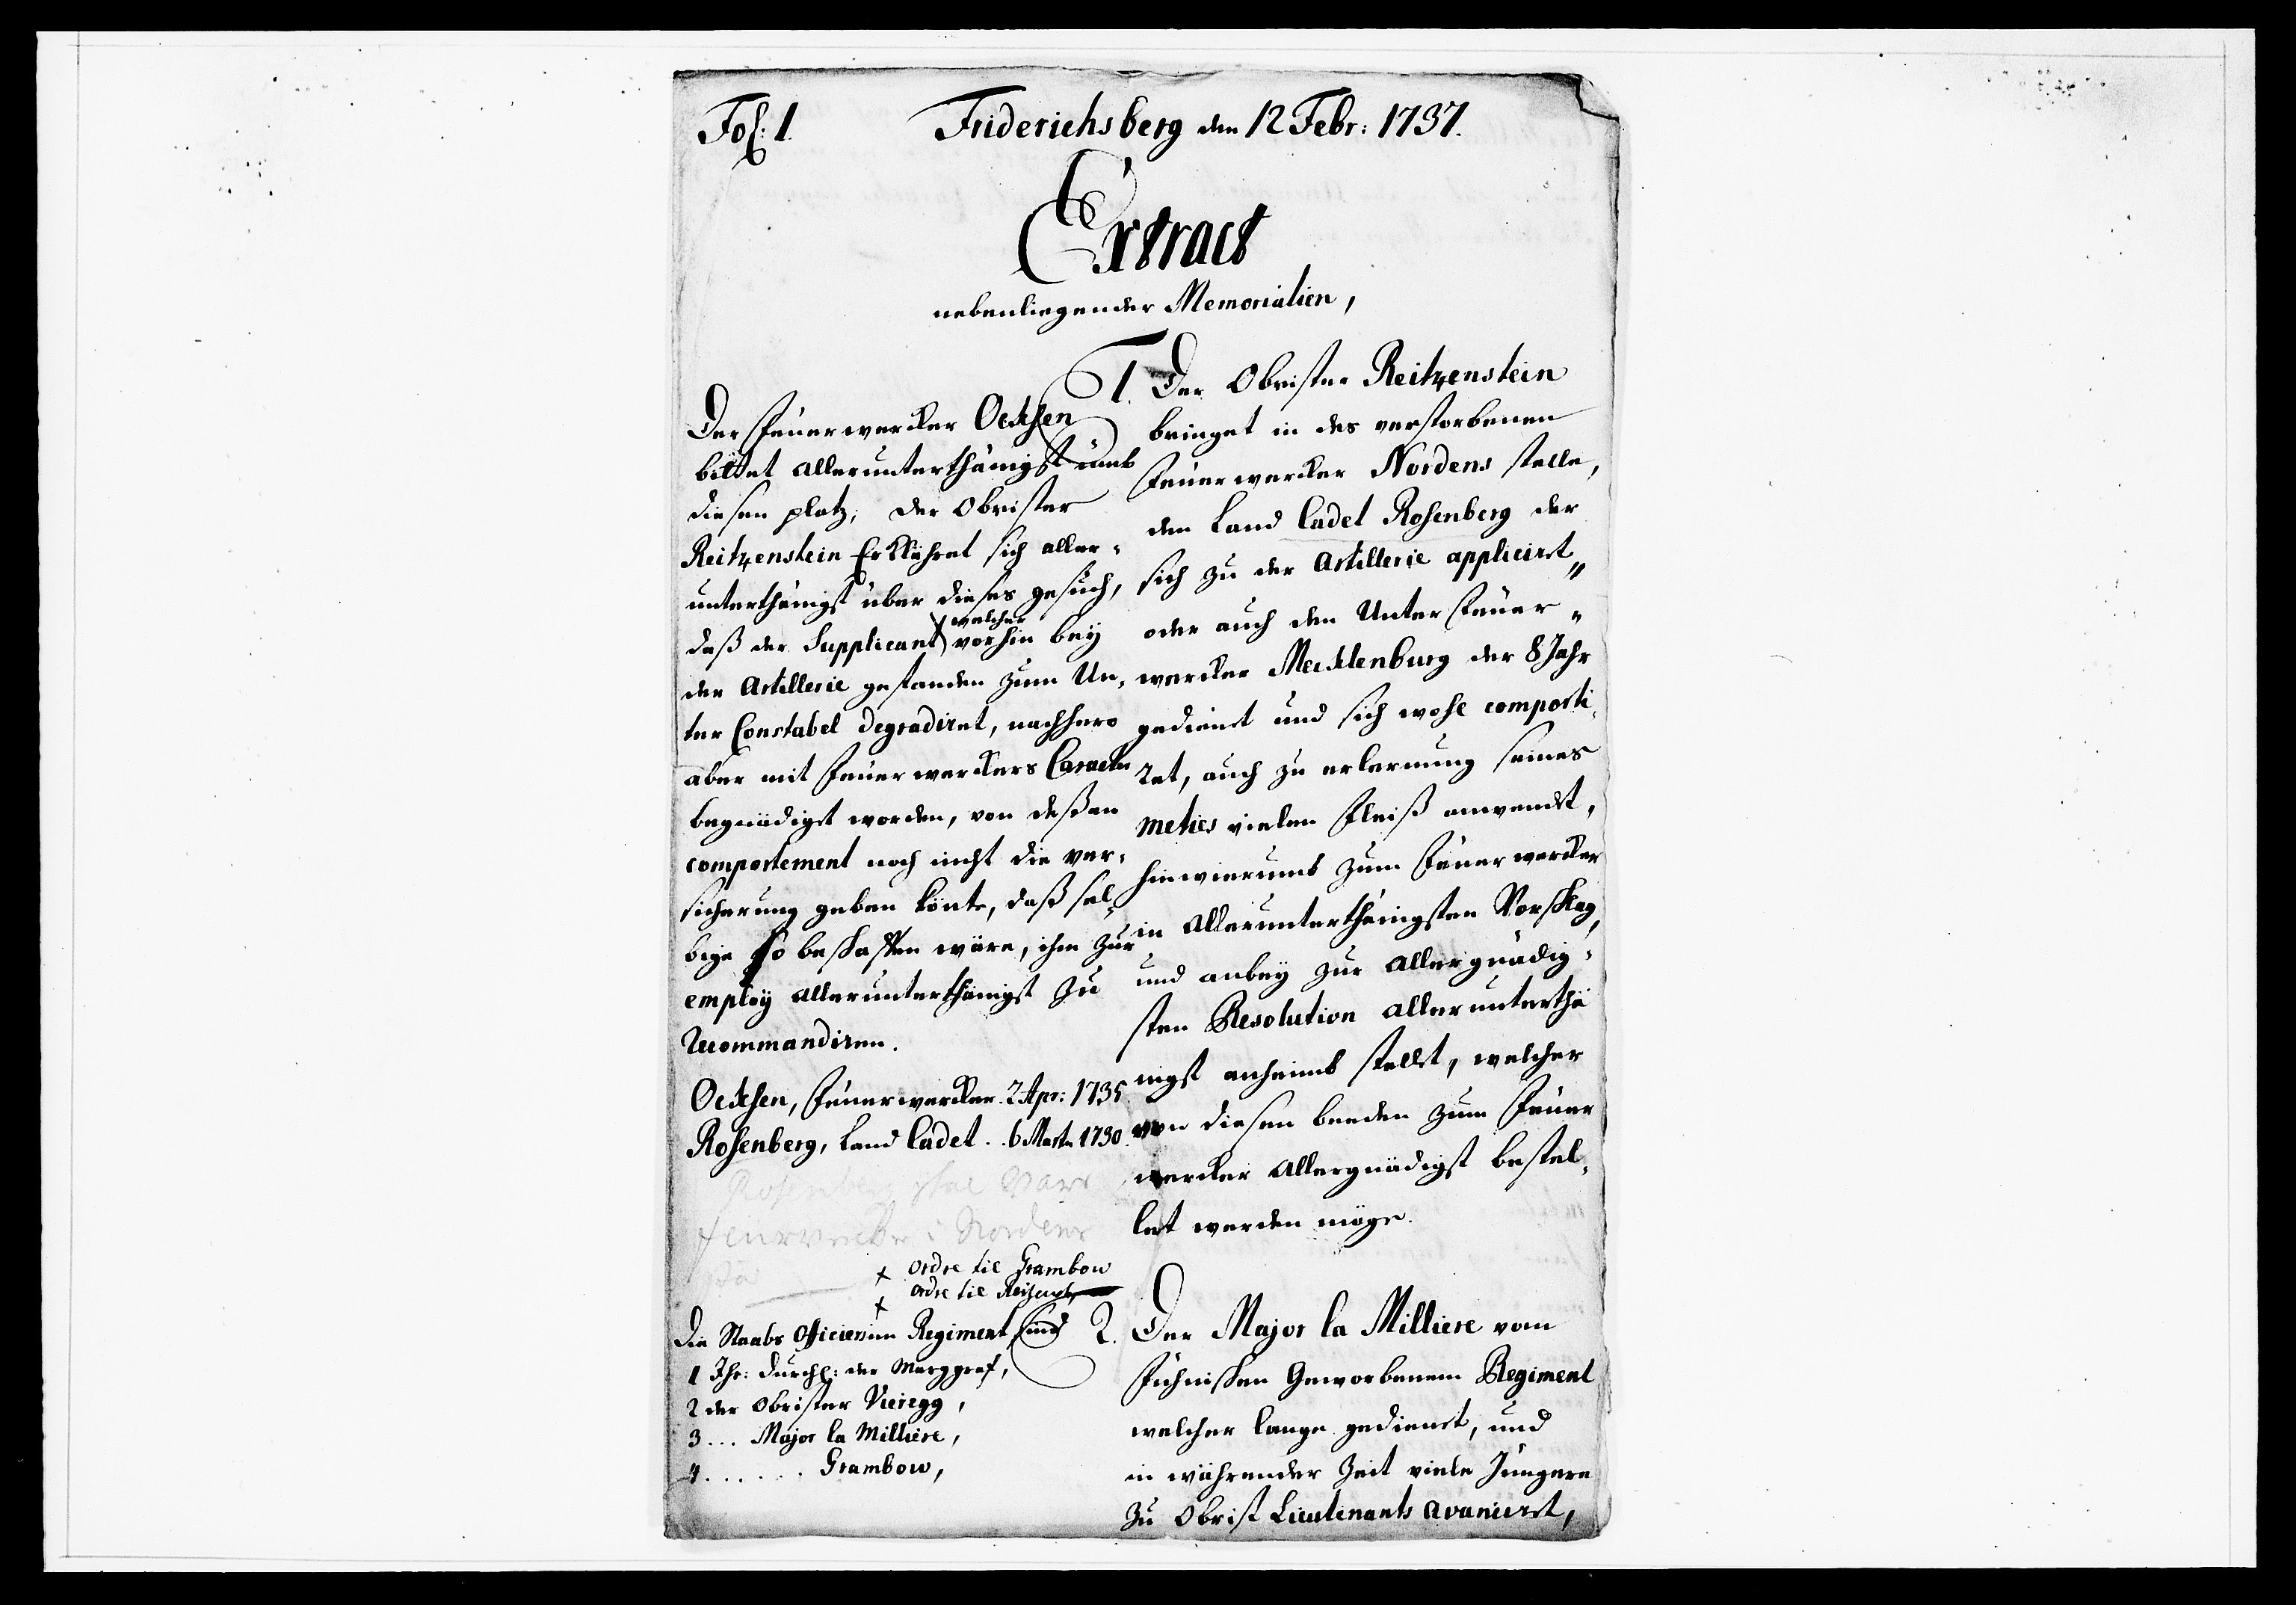 Fol: 1.
Friderichsberg den 12 Febr: 1737.
Extract
nebenliegender Memorialien,
Der Feuerwercker Ocksen
bittet allerunterthänigst umb
diesen platz, der Obrister
Reitzenstein Erklähret sich aller-
unterthänigst über dieses gesuch,
daß der Supplicant welcher vorhin bey
der Artillerie gestanden zum Un-
ter Constabel degradiret, nachhero
aber mit Feuerwerckers Caracter
begnädiget worden, von deßen
comportement noch nicht die ver-
sicherung geben könte, daß sel-
bige so beschaffen wäre, ihm zur
employ allerunterthänigst zu
recommandiren.
Ocksen, Feuerwercker. 2 Apr: 1735.
Rosenberg, Land Cadet. . 6 Marty 1730.
Rosenberg skal være
feurwerker i Nordens
sta
+ ordre til Grambow
+ ordre til
Die Staabs Officiers im Regiment sind
1 Ihr: Durchl: der Marggraf,
2 der Obrister Vieregg,
3 . . . Major la Milliere,
4 . . . . . . Grambow,
1. Der Obrister Reitzenstein
bringet in des verstorbenen
Feuerwercker Nordens stelle,
den Land Cadet Rosenberg der
sich zu der Artillerie appliciret
oder auch den Unter Feuer-
wercker Mecklenburg der 8 Jahr
gedienet und sich wohl comporti-
ret, auch zu erlernung seines
metiers vielen Fleiß anwendet,
hinwierumb zum Feuerwercker
in allerunterthänigsten Vorschlag,
und anbey zur allergnädig-
sten Resolution allerunterthä
nigst anheimb stellet, welcher
von diesen beeden zum Feuer
wercker allergnädigst bestel-
let werden möge.
2. Der Major la Milliere vom
Fühnischen Geworbenem Regiment
welcher lange gedienet, und
in währender Zeit viele Jüngere
zu Obrist Lieutenants avanciret,